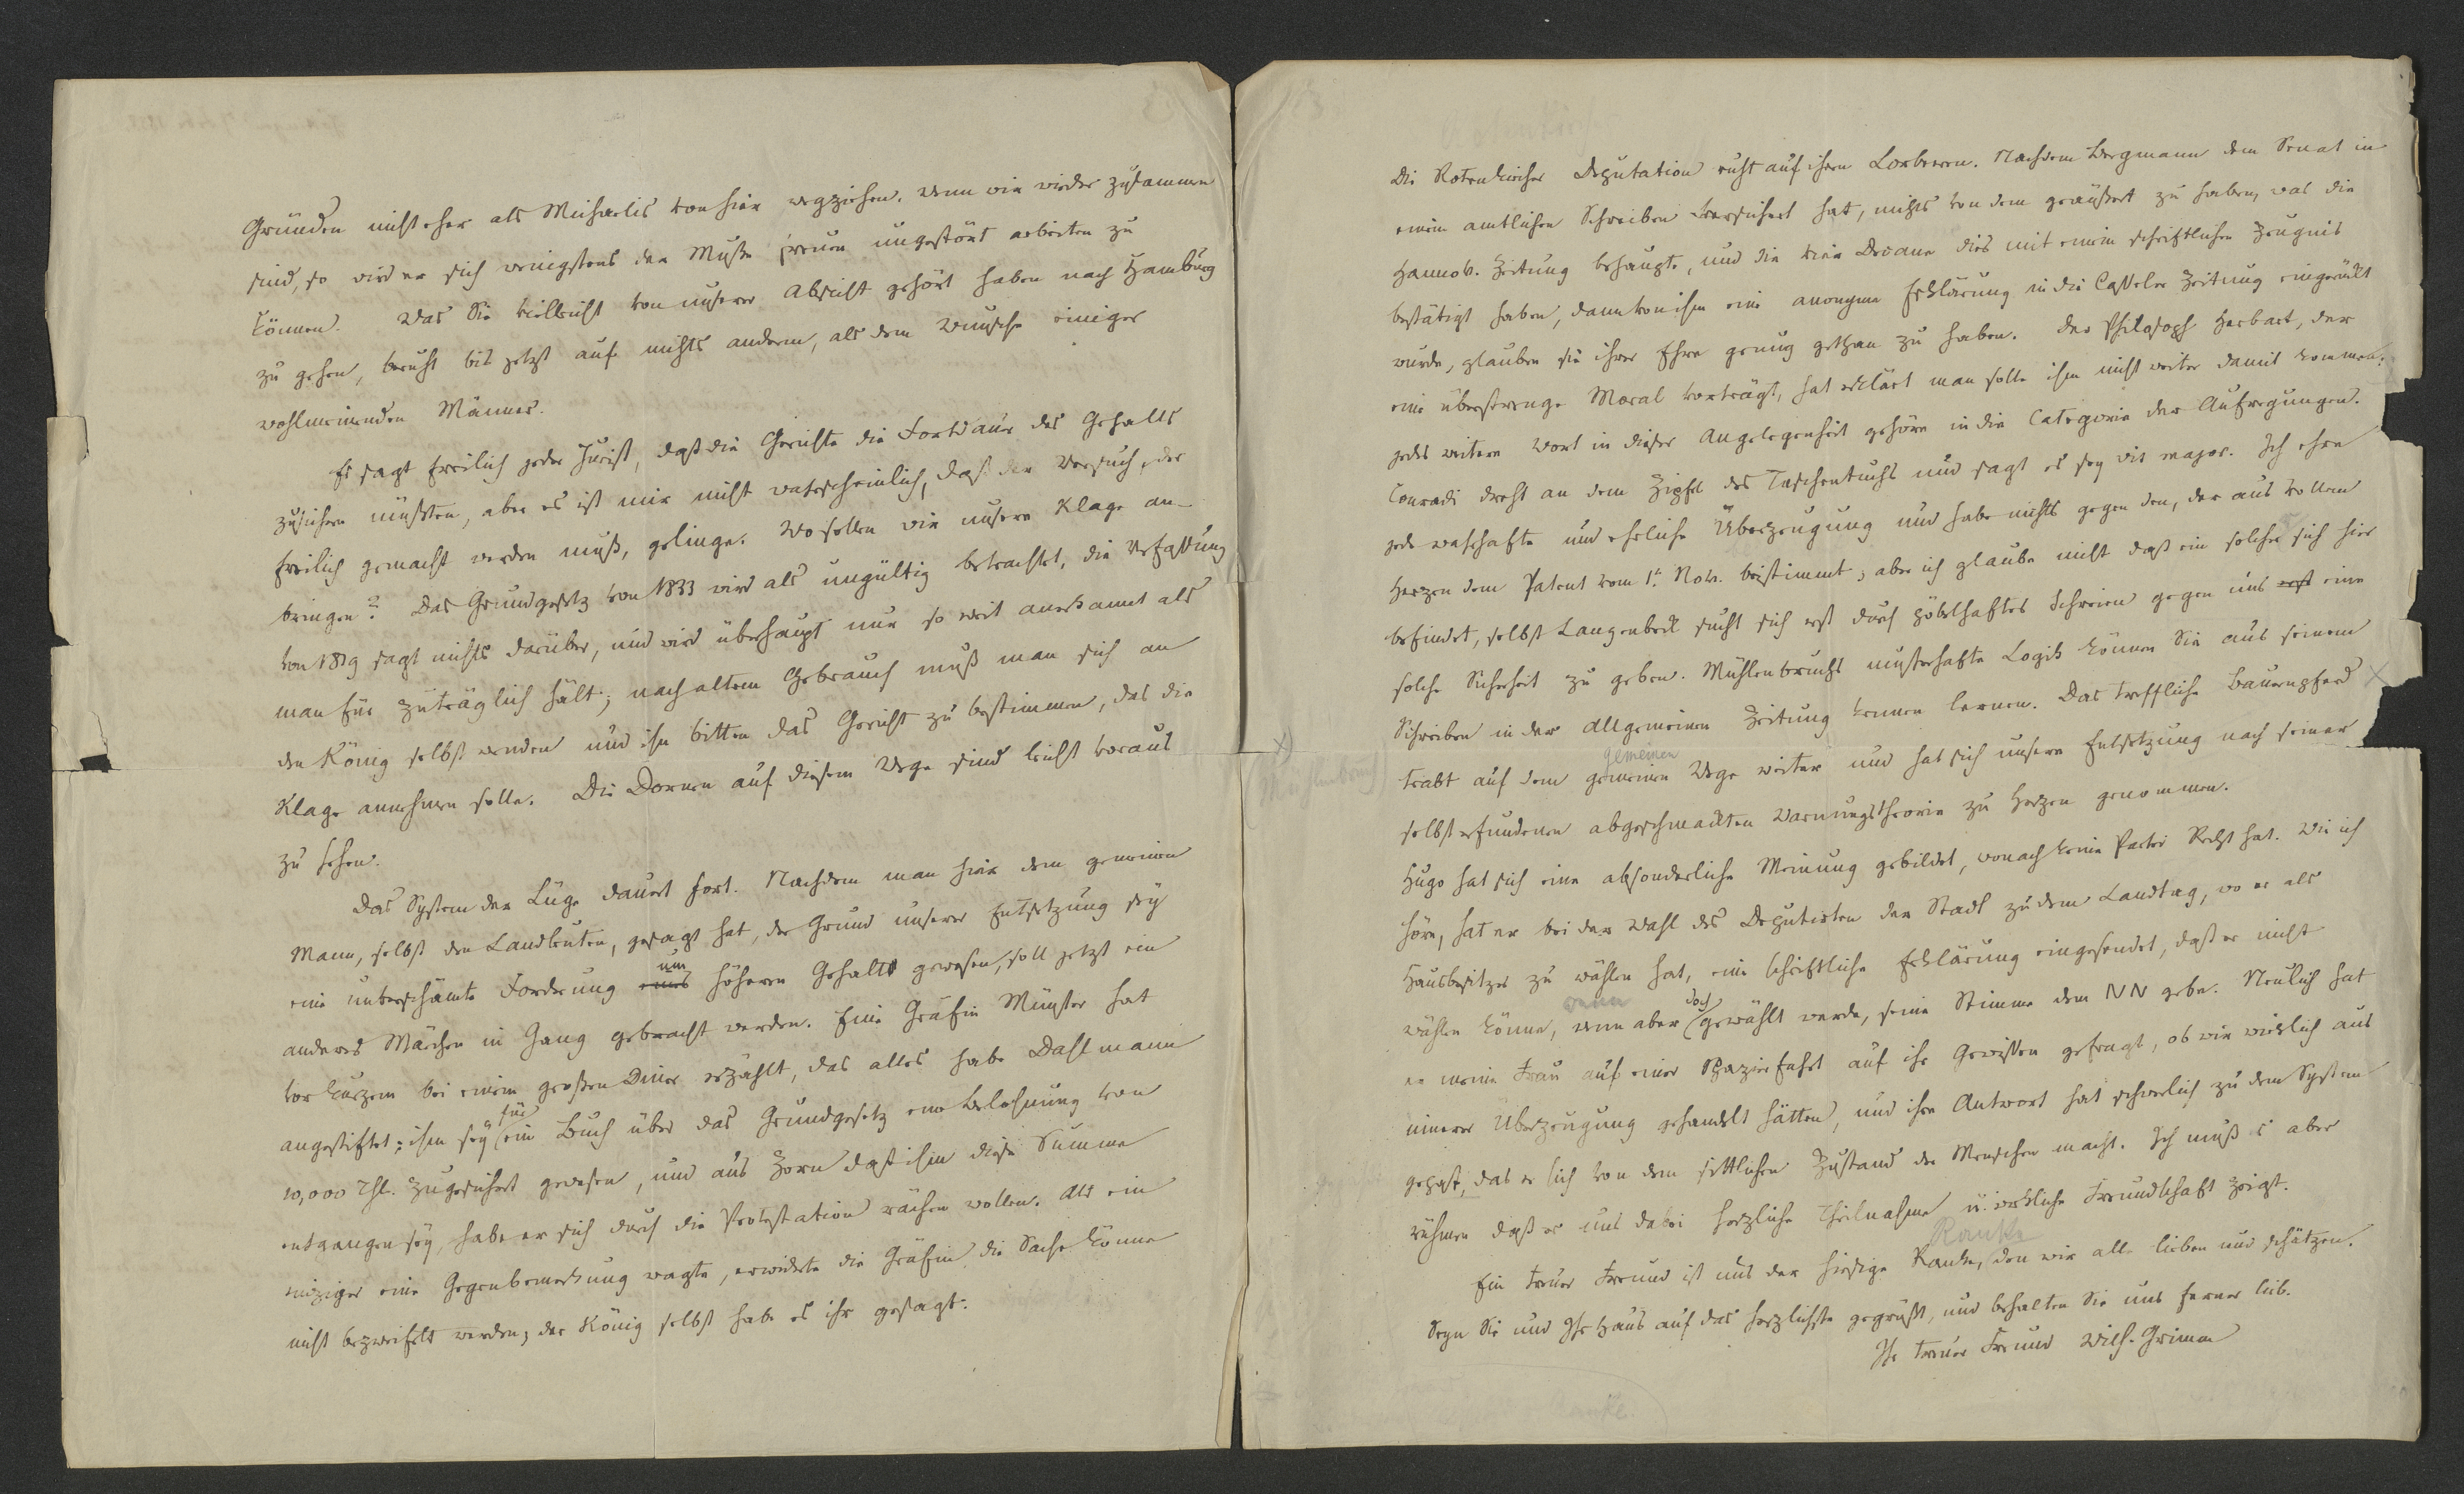 Gründen nicht eher als Michaelis von hier wegziehen. wenn wir wieder zusammen
sind, so wird er sich wenigstens der Muße freuen ungestört arbeiten zu
können. Was Sie vielleicht von unserer Absicht gehört haben nach Hamburg
zu gehen, beruht bis jetzt auf nichts anderm, als dem Wunsche einiger
wohlmeinenden Männer.
Es sagt freilich jeder Jurist, daß die Gerichte die Fortdauer des Gehalts
zusichern müßten, aber es ist mir nicht wahrscheinlich, daß der Versuch, der
freilich gemacht werden muß, gelinge. Wo sollen wir unsere Klage an-
bringen? Das Grundgesetz von 1833 wird als ungültig betrachtet, die Verfassung
von 1819 sagt nichts darüber, und wird überhaupt nur so weit anerkannt als
man für zuträglich hält; nach altem Gebrauch muß man sich an
den König selbst wenden und ihn bitten das Gericht zu bestimmen, das die
Klage annehmen solle. Die Dornen auf diesem Wege sind leicht voraus
zu sehen.
Das System der Lüge dauert fort. Nachdem man hier dem gemeinen
Mann, selbst den Landleuten, gesagt hat, der Grund unserer Entsetzung sey
eine unverschämte Forderung eines um höheren Gehalts gewesen, soll jetzt ein
anderes Märchen in Gang gebracht werden. Eine Gräfin Münster hat
vor kurzem bei einem großen Diner erzählt, das alles habe Dahlmann
angestiftet: ihm sey für ein Buch über das Grundgesetz eine Belohnung von
10,000 Thl. zugesichert gewesen, und aus Zorn daß ihm diese Summe
entgangen sey, habe er sich durch die Protestation rächen wollen. Als ein
einziger eine Gegenbemerkung wagte, erwiderte die Gräfin, die Sache könne
nicht bezweifelt werden, der König selbst habe es ihr gesagt.
Die Rotenkircher Deputation ruht auf ihren Lorbeeren. Nachdem Bergmann dem Senat in
einem amtlichen Schreiben versichert hat, nichts von dem geäußert zu haben, was die
Hannov. Zeitung behaupte, und die vier Decane dies mit einem schriftlichen Zeugnis
bestätigt haben, dann von ihm eine anonyme Erklärung in die Casseler Zeitung eingerückt
wurde, glauben sie ihrer Ehre genug gethan zu haben. Der Philosoph Herbart, der
eine überstrenge Moral vorträgt, hat erklärt man solle ihm nicht weiter damit kommen:
jedes weitere Wort in dieser Angelegenheit gehöre in die Categorie der Aufregungen.
Conradi dreht an dem Zipfel des Taschentuchs und sagt es sey vis major. Ich ehre
jede wahrhafte und ehrliche Überzeugung und habe nichts gegen den, der aus vollem
Herzen dem Patent vom 1t. Nov. beistimmt; aber ich glaube nicht daß ein solcher sich hier
befindet, selbst Langenbeck sucht sich erst durch pöbelhaftes Schreien gegen uns erst eine
solche Sicherheit zu geben. Mühlenbruchs musterhafte Logik können Sie aus seinem
Schreiben in der Allgemeinen Zeitung kennen lernen. Das treffliche Bauernpferd
trabt auf dem gemeinen Wege weiter und hat sich unsere Entsetzung nach seiner
gemeinen
Mühlenbruch
selbst erfundenen abgeschmackten Warnungstheorie zu Herzen genommen.
Hugo hat sich eine absonderliche Meinung gebildet, wonach keine Partei Recht hat. Wie ich
höre, hat er bei der Wahl des Deputirten der Stadt zu dem Landtag, wo er als
Hausbesitzer zu wählen hat, eine schriftliche Erklärung eingesendet, daß er nicht
wählen könne, wenn aber doch gewählt werde, seine Stimme dem NN gebe. Neulich hat
wenn
er meine Frau auf einer Spazierfahrt auf ihr Gewissen gefragt, ob wir wirklich aus
innerer Überzeugung gehandelt hätten, und ihre Antwort hat schwerlich zu dem System
gepaßt, das er sich von dem sittlichen Zustand der Menschen macht. Ich muß es aber
rühmen daß er uns dabei herzliche Theilnahme u. wirkliche Freundschaft zeigt.
Ranke
Ein treuer Freund ist uns der hiesige Ranke, den wir alle lieben und schätzen.
Seyn Sie und Ihr Haus auf das herzlichste gegrüßt, und behalten Sie uns ferner lieb.
Ihr treuer Freund Wilh. Grimm